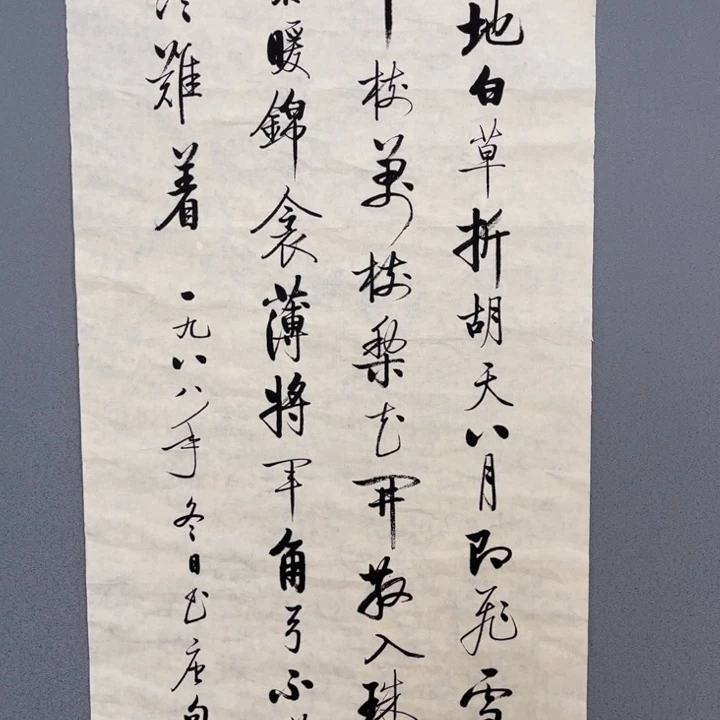 地白草折胡天八月即飛雪
樹萬樹梨花開散入珠
暖錦衾薄將軍角弓不
難着
一九八八年冬日书唐